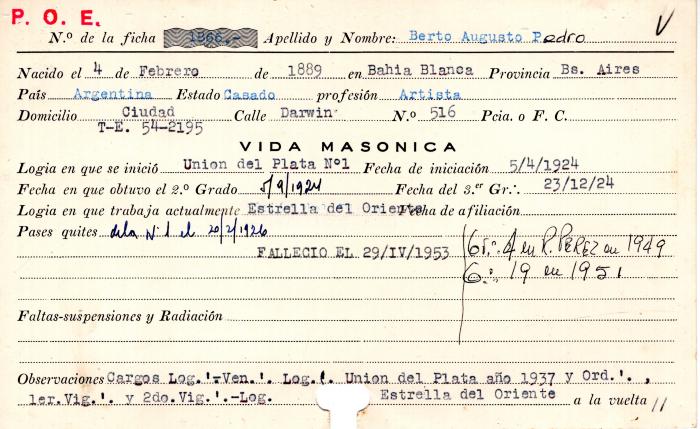 P. O. E.
N.º de la ficha 1866.- Apellido y Nombre: Berto Augusto Pedro V
Nacido el 4 de Febrero de 1889 en Bahia Blanca Provincia Bs. Aires
País Argentina Estado Casado profesión Artista
Domicilio Ciudad Calle Darwin N.º 516 Pcia. o F. C.
T-E. 54-2195
VIDA MASONICA
Logia en que se inició Union del Plata Nº1 Fecha de iniciación 5/4/1924
Fecha en que obtuvo el 2.º Grado 5/9/1924 Fecha del 3.er Gr∴ 23/12/24
Logia en que trabaja actualmente Estrella del Oriente Fecha de afiliación
Pases quites de la Nº 1 el 20/2/1926
FALLECIO EL 29/IV/1953 Gr∴ 4 en R. PEREZ en 1949
G∴ 19 en 1951
Faltas-suspensiones y Radiación
Observaciones Cargos Log.'.-Ven.'. Log.'. Union del Plata año 1937 y Ord.'. ,
1er.Vig.'. y 2do.Vig.'.-Log. Estrella del Oriente a la vuelta //